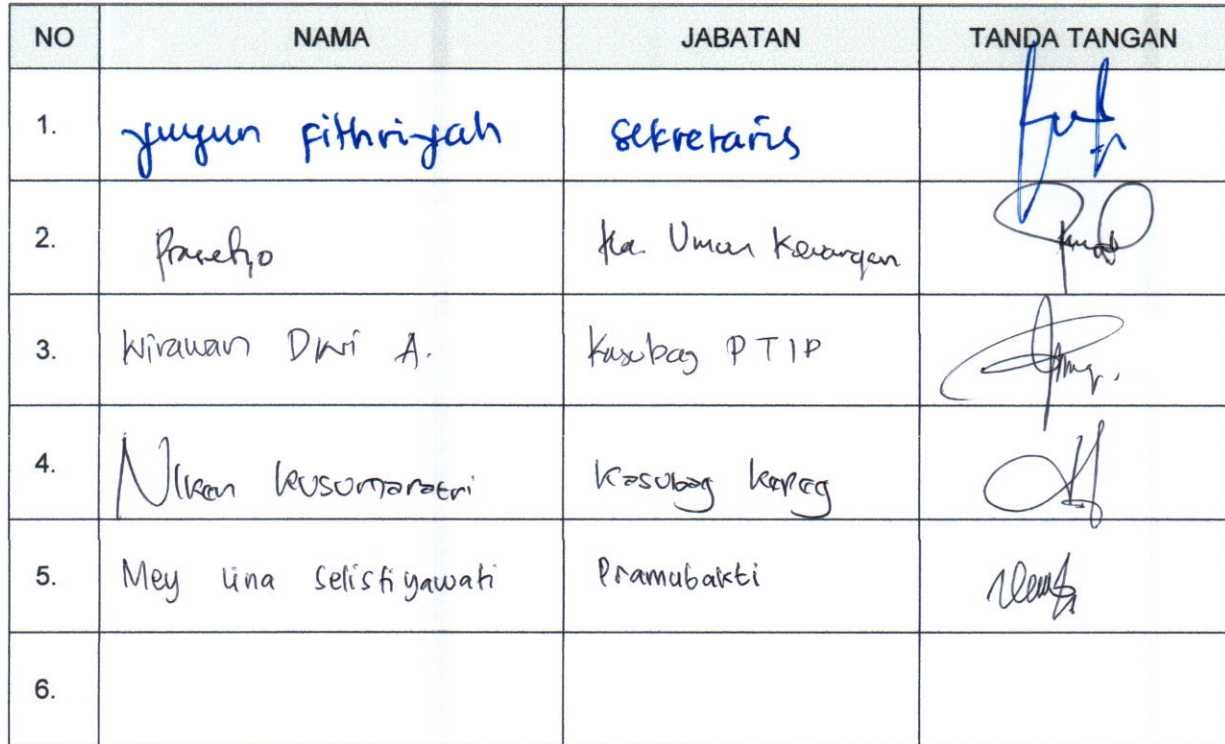 NO NAMA JABATAN TANDA TANGAN
1. yuyun fithriyah sekretaris
2. Prasetyo Ka. Umum Keuangan
3. Wirawan Dwi A. Kasubag PTIP
4. Niken Kusumaratri Kasubag Kepeg
5. Mey Lina Selistiyawati Pramubakti
6.